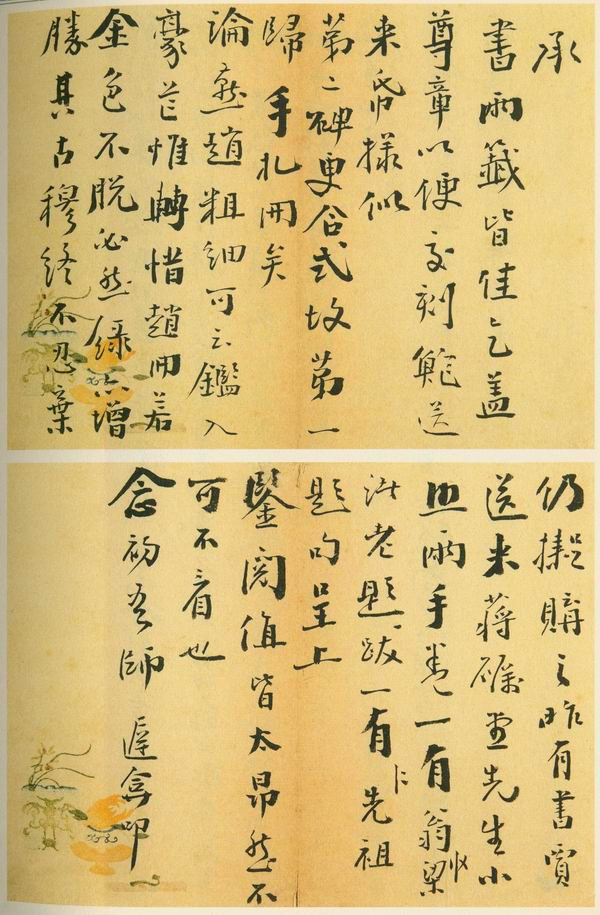 承
書兩籤皆佳乞盖
尊章以便交刻鲍送
来帋樣似
第二碑更合式故第一
歸手札用矣
論燕趙粗細可云鑑入
豪芒惟轉惜趙用若
金色不脱必然綠六增
勝其古穆終不忍棄
仍擬購之昨有書賈
送来蔣礪堂先生小
照兩手卷一有翁梁
老題跋一有先祖
題句呈上
鑒閱值皆太昂然不
可不看也
念初吾師 遲盦叩